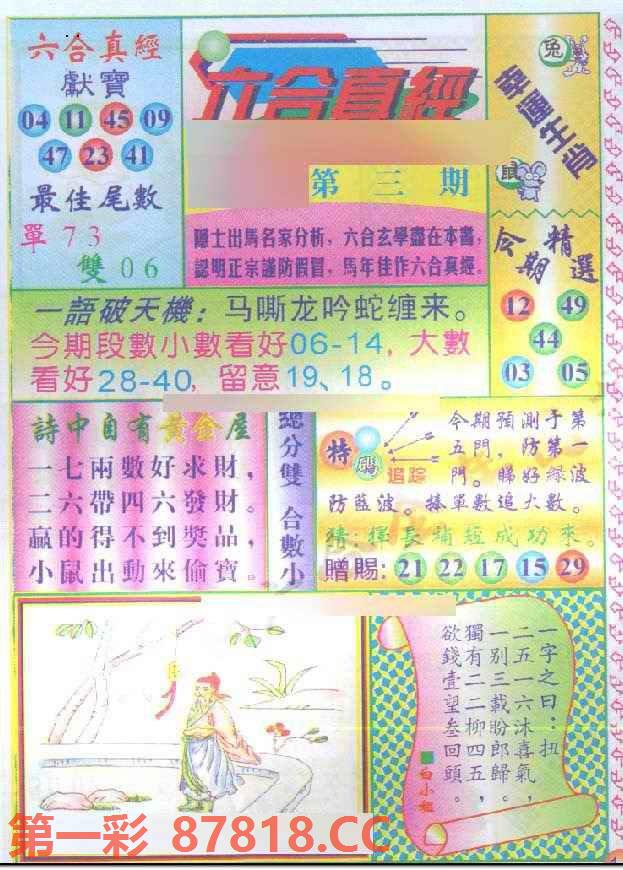 六合真經
獻寶
04 11 45 09
47 23 41
最佳尾數
單 7 3
雙 0 6
六合真經
第三期
隱士出馬名家分析，六合玄學盡在本書，
認明正宗謹防假冒，馬年佳作六合真經。
兔
幸運生肖
鼠
今期精選
12 49
44
03 05
一語破天機：马嘶龙吟蛇缠来。
今期段數小數看好06-14，大數
看好28-40，留意19、18。
詩中自有黃金屋
一七兩數好求財，
二六帶四六發財。
贏的得不到獎品，
小鼠出動來偷寶。
總分雙 合數小
特碼
追踪
今期預測于第
五門，防第一
門。睇好綠波
防藍波。捧單數追大數。
猜：揮長補短成功來。
贈賜：21 22 17 15 29
一字之曰：扭
二五一六沐喜氣，
一别三載盼郎歸。
獨有二二柳四五，
欲錢壹望叁回頭。
白小姐
第一彩 87818.CC